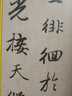 徘徊於
光接天